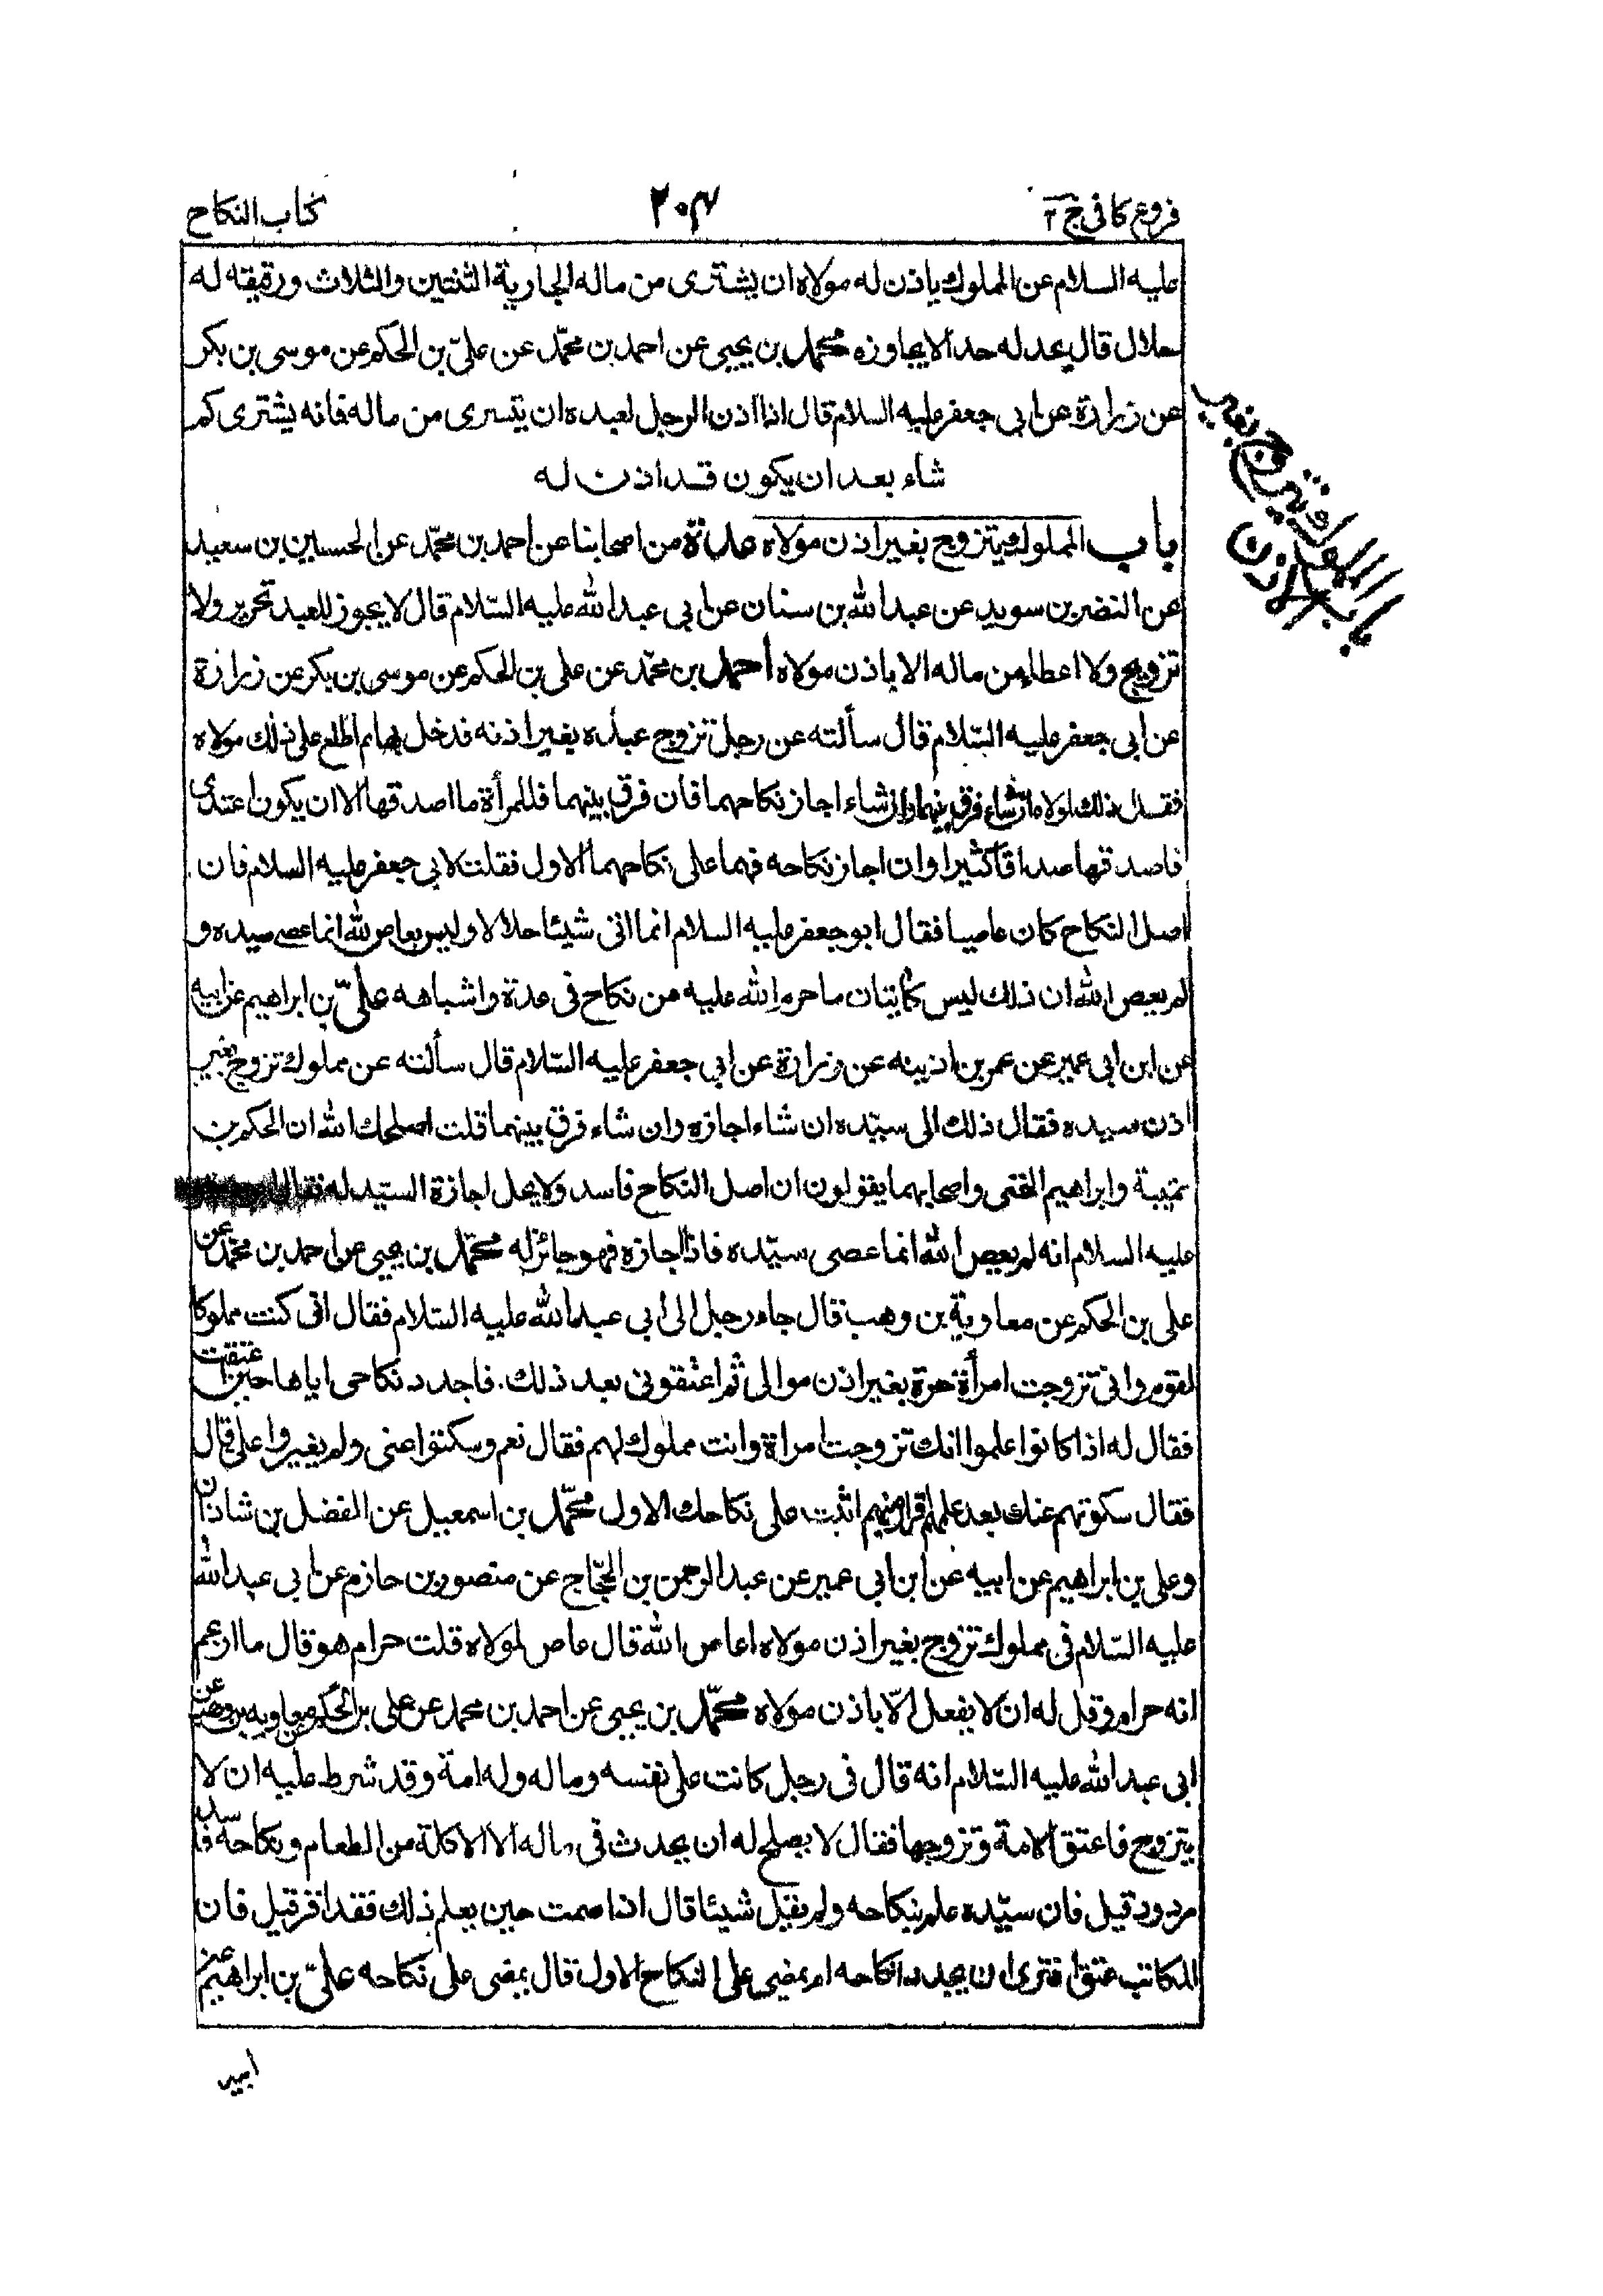 فروع كافى ج ٣
٢٠٤
كتاب النكاح
عليه السلام عن المملوك ياذن له مولاه ان يشترى من ماله الجارية الثنتين والثلاث ورقيقه له
حلال قال يحد له حدا لا يجاوزه محمد بن يحيى عن احمد بن محمّد عن علىّ بن الحكم عن موسى بن بكر
عن زرارة عن ابى جعفر عليه السلام قال اذا اذن الرجل لعبده ان يتسرى من ماله فانه يشترى كم
شاء بعد ان يكون قد اذن له
باب المملوك يتزوج بغير اذن مولاه عدة من اصحابنا عن احمد بن محمّد عن الحسين بن سعيد
عن النضر بن سويد عن عبد الله بن سنان عن ابى عبد الله عليه السّلام قال لا يجوز للعبد تحرير ولا
تزويج ولا اعطاء من ماله الا باذن مولاه احمد بن محمّد عن على بن الحكم عن موسى بن بكر عن زرارة
عن ابى جعفر عليه السّلام قال سألته عن رجل تزوج عبده بغير اذنه فدخل بها ثم اطلع على ذلك مولاه
فقال ذلك لمولاه ان شاء فرق بينهما وان شاء اجاز نكاحهما فان فرق بينهما فللمرأة ما اصدقها الا ان يكون اعتدى
فاصدقها صداقا كثيرا وان اجاز نكاحه فهما على نكاحهما الاول فقلت لابى جعفر عليه السلام فان
اصل النكاح كان عاصيا فقال ابو جعفر عليه السلام انما اتى شيئا حلالا وليس بعاص لله انما عصى سيده و
لم يعص الله ان ذلك ليس كاتيان ما حرم الله عليه من نكاح فى عدة واشباهه علىّ بن ابراهيم عن ابيه
عن ابن ابى عمير عن عمر بن اذينه عن زرارة عن ابى جعفر عليه السّلام قال سألته عن مملوك تزوج بغير
اذن سيده فقال ذلك الى سيّده ان شاء اجازه وان شاء فرق بينهما قلت اصلحك الله ان الحكم بن
عتيبة وابراهيم النخعى واصحابهما يقولون ان اصل النكاح فاسد ولا يحل اجازة السيّد له فقال
عليه السلام انه لم يعص الله انما عصى سيّده فاذا اجازه فهو جائز له محمّد بن يحيى عن احمد بن محمّد عن
على بن الحكم عن معاوية بن وهب قال جاء رجل الى ابى عبد الله عليه السّلام فقال انى كنت مملوكا
لقوم وانى تزوجت امرأة حرة بغير اذن موالى ثم اعتقونى بعد ذلك فاجدد نكاحى اياها حين عتقت
فقال له اذا كانوا علموا انك تزوجت امراة وانت مملوك لهم فقال نعم وسكتوا عنى ولم يغيروا على قال
فقال سكوتهم عنك بعد علمهم اقرار منهم اثبت على نكاحك الاول محمّد بن اسمعيل عن الفضل بن شاذان
وعلى بن ابراهيم عن ابيه عن ابن ابى عمير عن عبد الرحمن بن الحجّاج عن منصور بن حازم عن ابى عبد الله
عليه السّلام فى مملوك تزوج بغير اذن مولاه اعاص الله قال عاص لمولاه قلت حرام هو قال ما ازعم
انه حرام وقل له ان لا يفعل الّا باذن مولاه محمّد بن يحيى عن احمد بن محمد عن على بن الحكم عن معاويه بن وهب عن
ابى عبد الله عليه السّلام انه قال فى رجل كاتب على نفسه وماله وله امة وقد شرط عليه ان لا
يتزوج فاعتق الامة وتزوجها فقال لا يصلح له ان يحدث فى ماله الا الاكلة من الطعام ونكاحه فاسد
مردود قيل فان سيّده علم بنكاحه ولم يقل شيئا قال اذا صمت حين يعلم ذلك فقد اقر قيل فان
المكاتب عتق افترى ان يجدد نكاحه ام يمضى على النكاح الاول قال يمضى على نكاحه علىّ بن ابراهيم عن
ابيه
باب المملوك يتزوج بغير الاذن